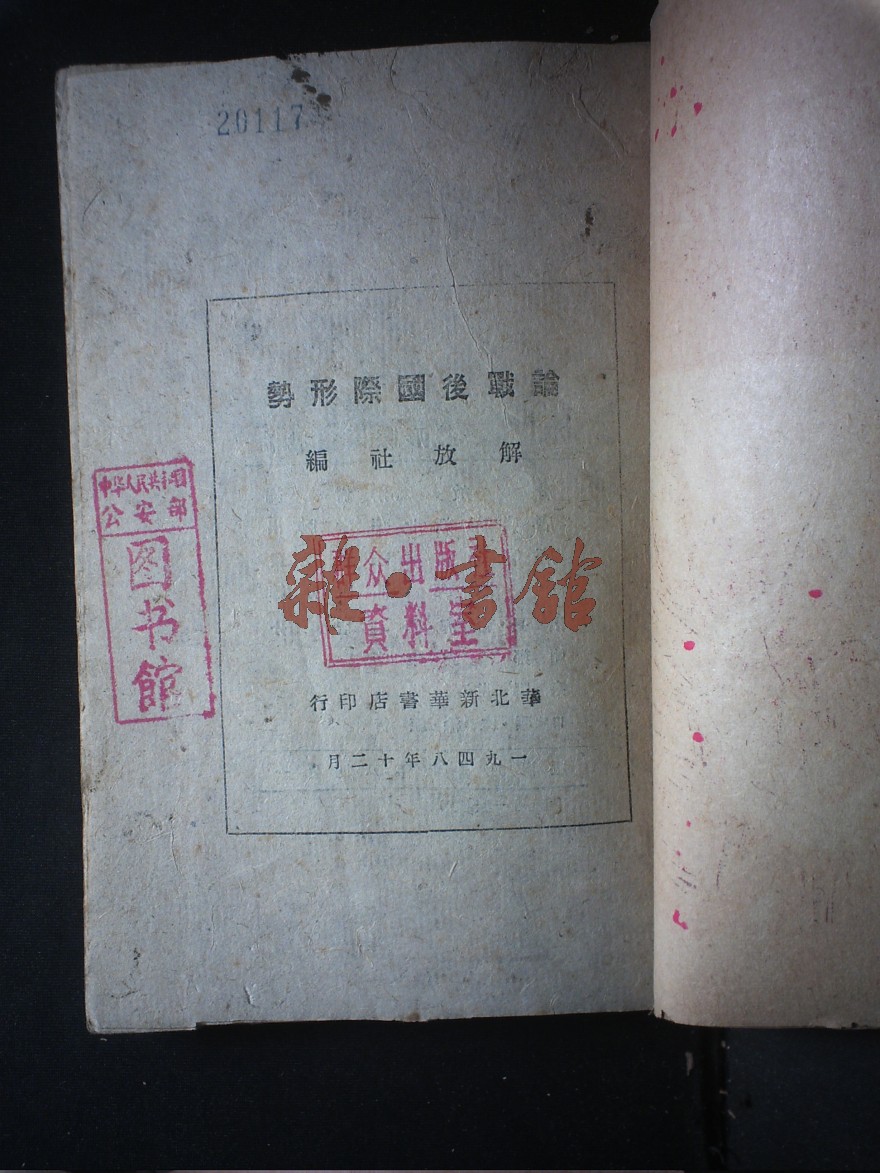 20117
論戰後國際形勢
解放社編
華北新華書店印行
一九四八年十二月
中华人民共和国
公安部
图书馆
群众出版社
資料室
雜·書館